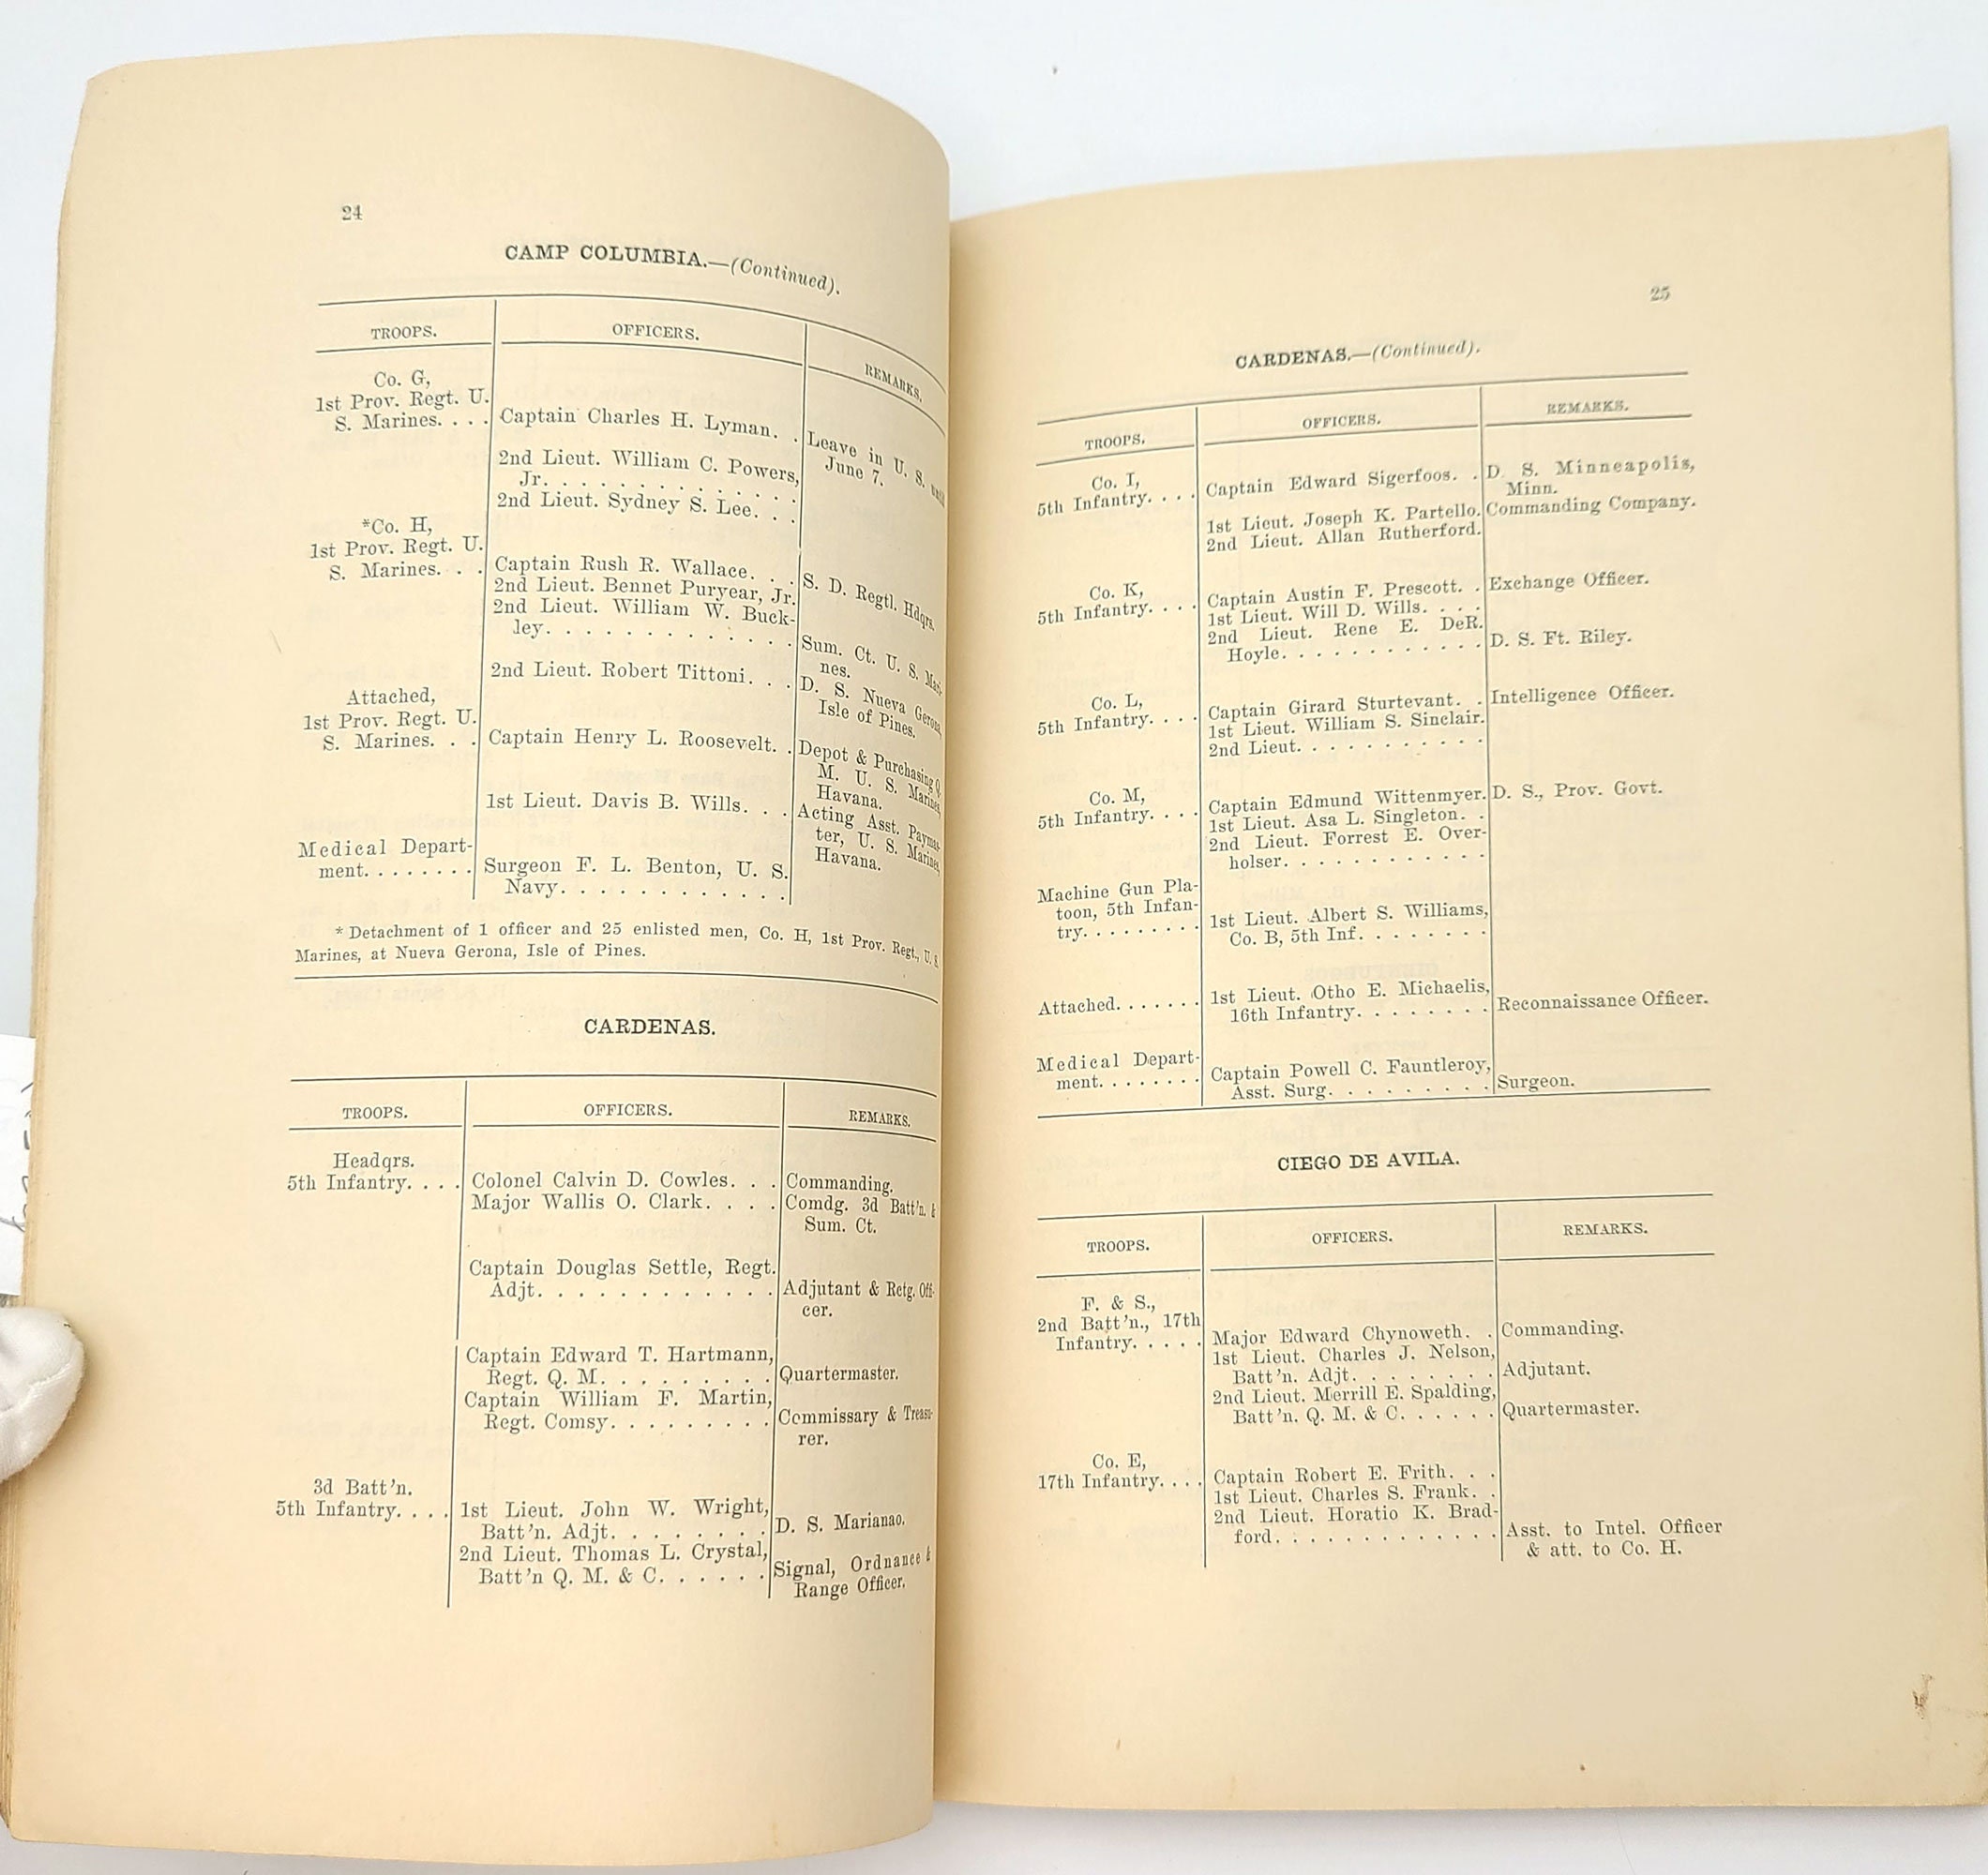 24
CAMP COLUMBIA.—(Continued).
TROOPS. OFFICERS. REMARKS.
Co. G,
1st Prov. Regt. U.
S. Marines. . . . Captain Charles H. Lyman. . Leave in U. S. until
June 7.
2nd Lieut. William C. Powers,
Jr. . . . . . . . . . . . . .
2nd Lieut. Sydney S. Lee. . .
*Co. H,
1st Prov. Regt. U.
S. Marines. . . Captain Rush R. Wallace. . . S. D. Regtl. Hdqrs.
2nd Lieut. Bennet Puryear, Jr.
2nd Lieut. William W. Buck-
ley. . . . . . . . . . . . . Sum. Ct. U. S. Mari-
nes.
2nd Lieut. Robert Tittoni. . . D. S. Nueva Gerona,
Isle of Pines.
Attached,
1st Prov. Regt. U.
S. Marines. . . Captain Henry L. Roosevelt. . Depot & Purchasing Q.
M. U. S. Marines,
Havana.
1st Lieut. Davis B. Wills. . . Acting Asst. Paymas-
ter, U. S. Marines,
Havana.
Medical Depart-
ment. . . . . . . . Surgeon F. L. Benton, U. S.
Navy. . . . . . . . . . . .
* Detachment of 1 officer and 25 enlisted men, Co. H, 1st Prov. Regt., U. S.
Marines, at Nueva Gerona, Isle of Pines.
CARDENAS.
TROOPS. OFFICERS. REMARKS.
Headqrs.
5th Infantry. . . . Colonel Calvin D. Cowles. . . Commanding.
Major Wallis O. Clark. . . . Comdg. 3d Batt'n. &
Sum. Ct.
Captain Douglas Settle, Regt.
Adjt. . . . . . . . . . . . Adjutant & Retg. Offi-
cer.
Captain Edward T. Hartmann,
Regt. Q. M. . . . . . . . . Quartermaster.
Captain William F. Martin,
Regt. Comsy. . . . . . . . . Commissary & Treasu-
rer.
3d Batt'n.
5th Infantry. . . . 1st Lieut. John W. Wright,
Batt'n. Adjt. . . . . . . . D. S. Marianao.
2nd Lieut. Thomas L. Crystal,
Batt'n Q. M. & C. . . . . . Signal, Ordnance &
Range Officer.
25
CARDENAS.—(Continued).
TROOPS. OFFICERS. REMARKS.
Co. I,
5th Infantry. . . . Captain Edward Sigerfoos. . D. S. Minneapolis,
Minn.
1st Lieut. Joseph K. Partello. Commanding Company.
2nd Lieut. Allan Rutherford.
Co. K,
5th Infantry. . . . Captain Austin F. Prescott. . Exchange Officer.
1st Lieut. Will D. Wills. . . .
2nd Lieut. Rene E. DeR.
Hoyle. . . . . . . . . . . . D. S. Ft. Riley.
Co. L,
5th Infantry. . . . Captain Girard Sturtevant. . Intelligence Officer.
1st Lieut. William S. Sinclair.
2nd Lieut. . . . . . . . . . .
Co. M,
5th Infantry. . . . Captain Edmund Wittenmyer. D. S., Prov. Govt.
1st Lieut. Asa L. Singleton. .
2nd Lieut. Forrest E. Over-
holser. . . . . . . . . . . .
Machine Gun Pla-
toon, 5th Infan-
try. . . . . . . . . 1st Lieut. Albert S. Williams,
Co. B, 5th Inf. . . . . . .
Attached. . . . . . . 1st Lieut. Otho E. Michaelis,
16th Infantry. . . . . . . . Reconnaissance Officer.
Medical Depart-
ment. . . . . . . . Captain Powell C. Fauntleroy,
Asst. Surg. . . . . . . . . Surgeon.
CIEGO DE AVILA.
TROOPS. OFFICERS. REMARKS.
F. & S.,
2nd Batt'n., 17th
Infantry. . . . . Major Edward Chynoweth. . Commanding.
1st Lieut. Charles J. Nelson,
Batt'n. Adjt. . . . . . . . Adjutant.
2nd Lieut. Merrill E. Spalding,
Batt'n. Q. M. & C. . . . . . Quartermaster.
Co. E,
17th Infantry. . . . Captain Robert E. Frith. . .
1st Lieut. Charles S. Frank. .
2nd Lieut. Horatio K. Brad-
ford. . . . . . . . . . . . . Asst. to Intel. Officer
& att. to Co. H.